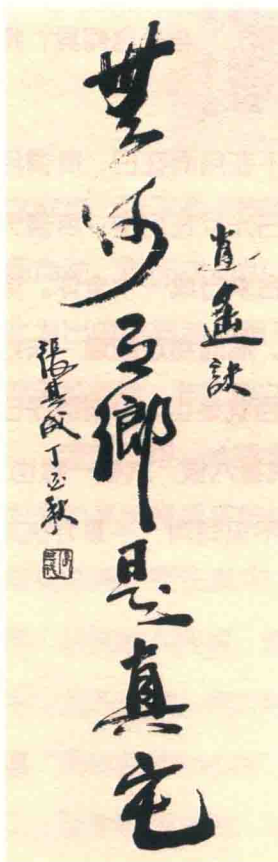 逍遥訣
無何有鄉是真宅
張其成丁酉秋